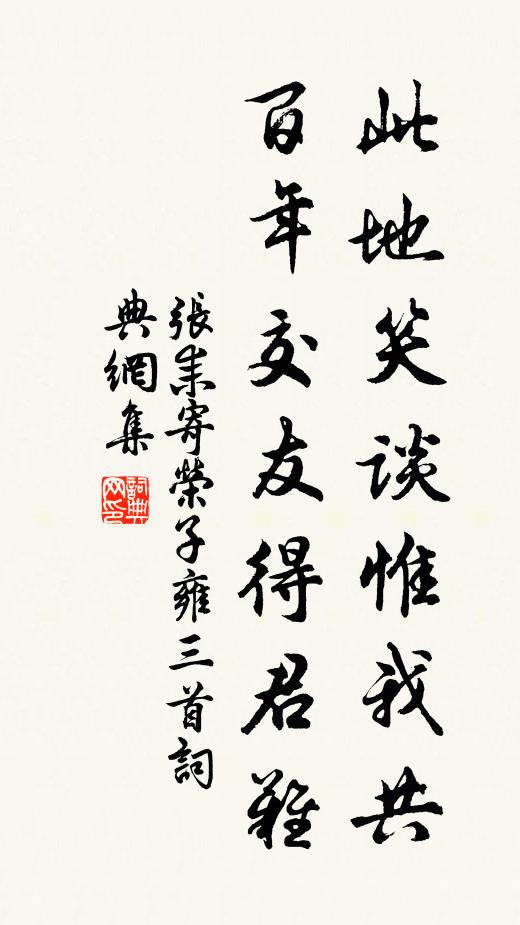 此地笑談惟我共
百年交友得君難
張耒寄榮子雍三首詞
典網集
詞典網印